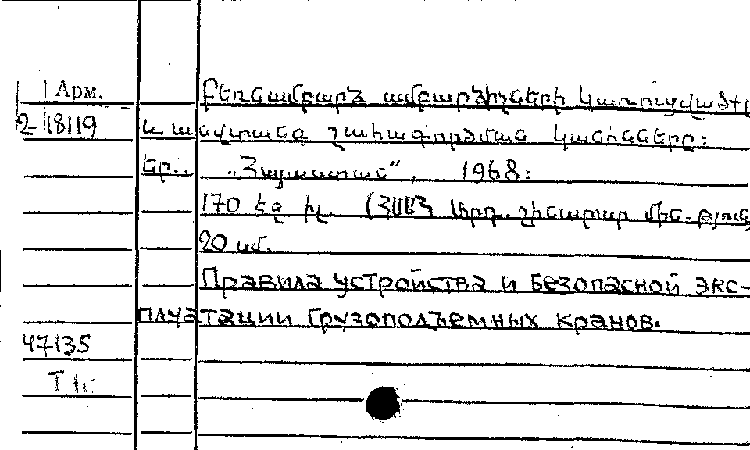 Арм.
2-18119
Բեռնամբարձ ամբարձիչների կառուցված
և անվտանգ շահագործման կանոնները:
Եր., „Հայաստան“, 1968:
170 էջ իլ. (ՀՍՍՀ Արդ. շինարար մին-թյուն
20 սմ.
Правила устройства и безопасной экс-
плуатации грузоподъемных кранов.
47135